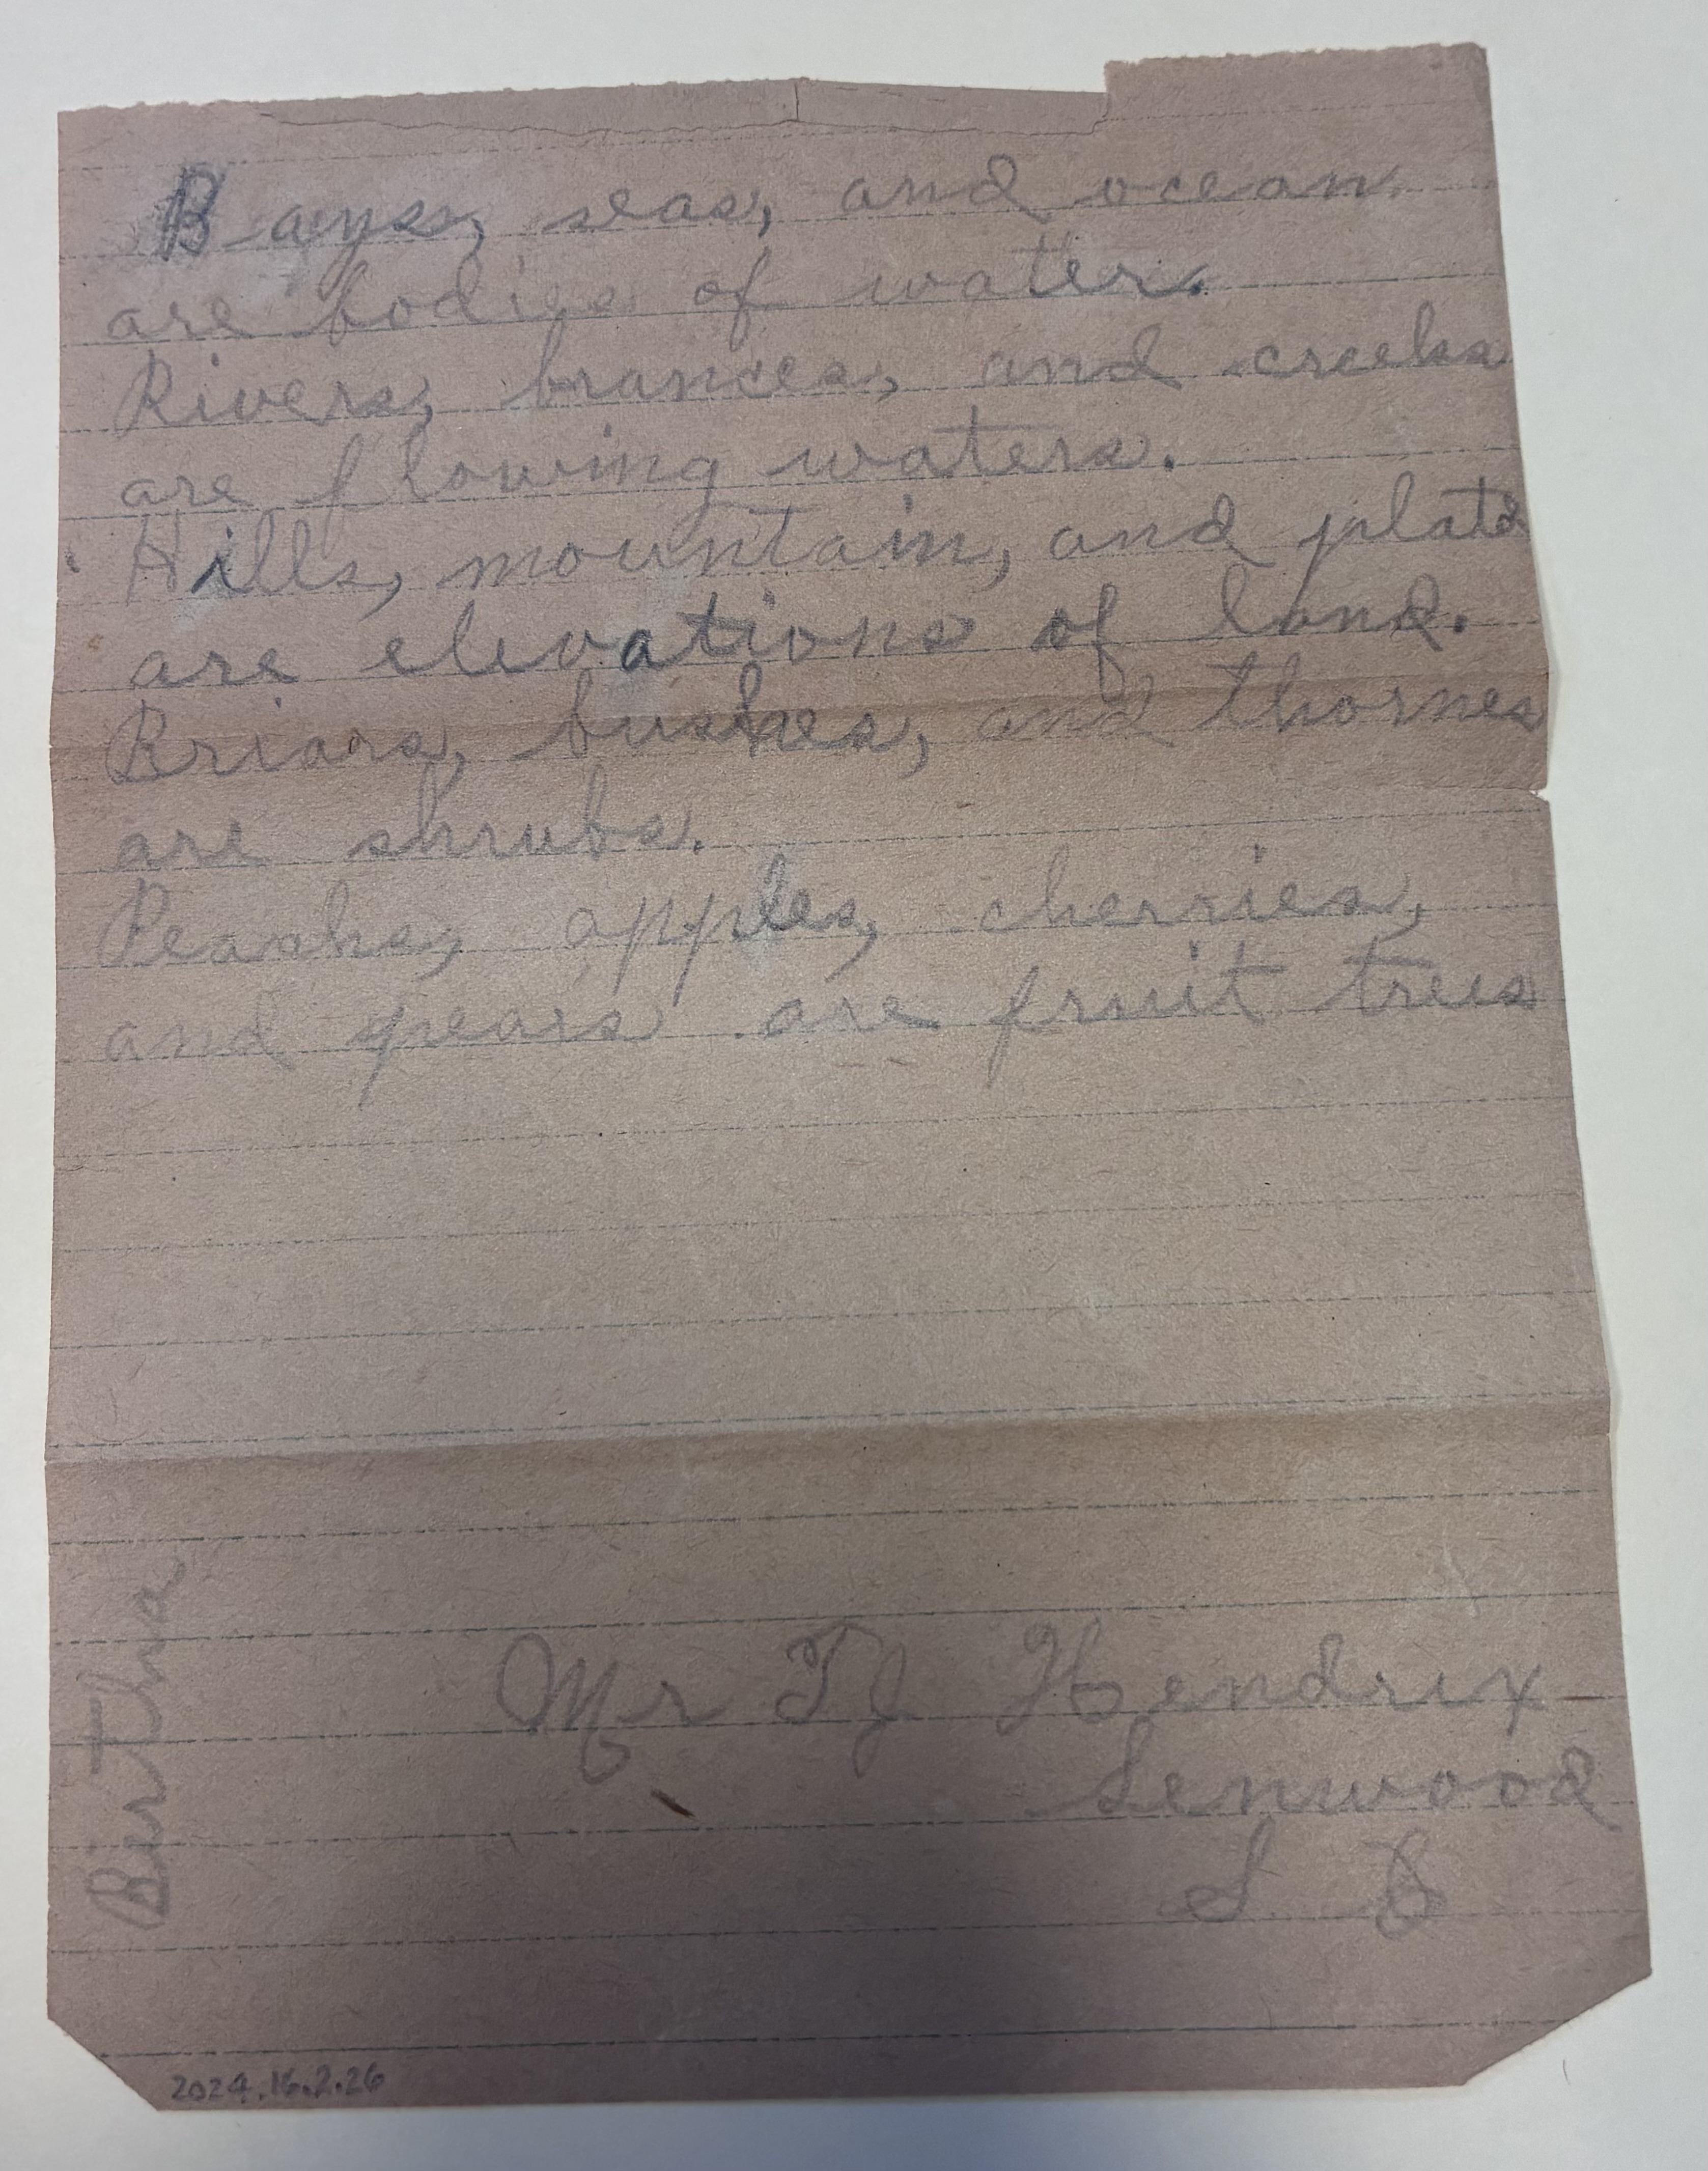 Bays, seas, and ocean
are bodies of water.
Rivers, brances, and creeks
are flowing waters.
Hills, mountain, and plate
are elevations of land.
Briars, bushes, and thornes
are shrubs.
Peachs, apples, cherries,
and pears are fruit trees
Bertha
Mr TJ Hendrix
Lenwood
S. C
2024.16.2.26